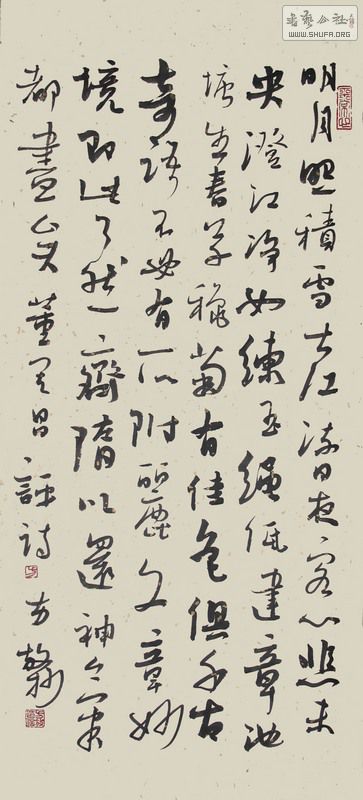 書藝公社
WWW.SHUFA.ORG
明月照積雪大江流日夜客心悲未
央澄江净如練玉繩低建章池
塘生春草穐菊有佳色俱千古
奇語不必有所附麗文章妙
境即此了然齊隋以還神氣
都盡矣董其昌評詩 方